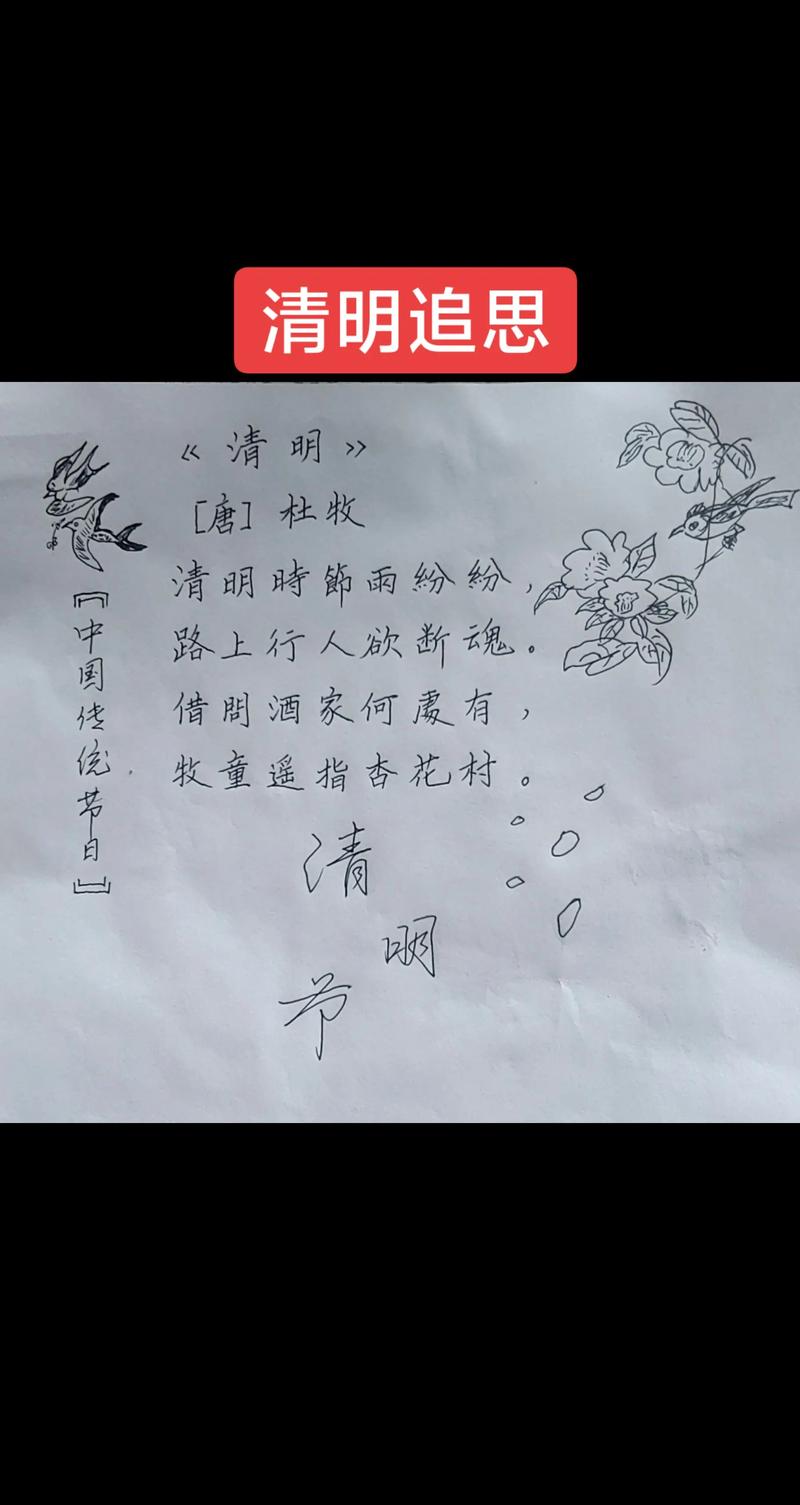 清明追思
《清明》
[唐]杜牧
清明時節雨紛紛，
路上行人欲断魂。
借問酒家何處有，
牧童遥指杏花村。
【中国传统节日】
清
明
节